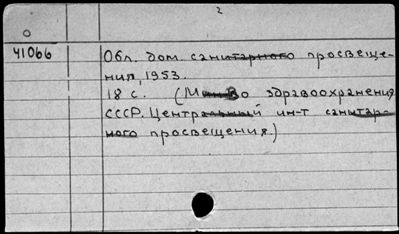 2
О
41066 Обл. дом. санитарного просвеще-
ния, 1953.
18 с. (М-во здравоохранения
СССР. Центральный ин-т санитар-
ного просвещения.)